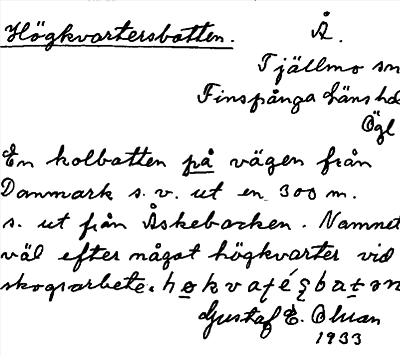 Högkvartersbotten. Å.
Tjällmo sn
Finspånga läns hd
Ögl
En kolbotten på vägen från
Danmark s. v. ut en 300 m.
s. ut från Åskebacken. Namnet
väl efter något högkvarter vid
skogsarbete.
Gustaf E. Olman
1933